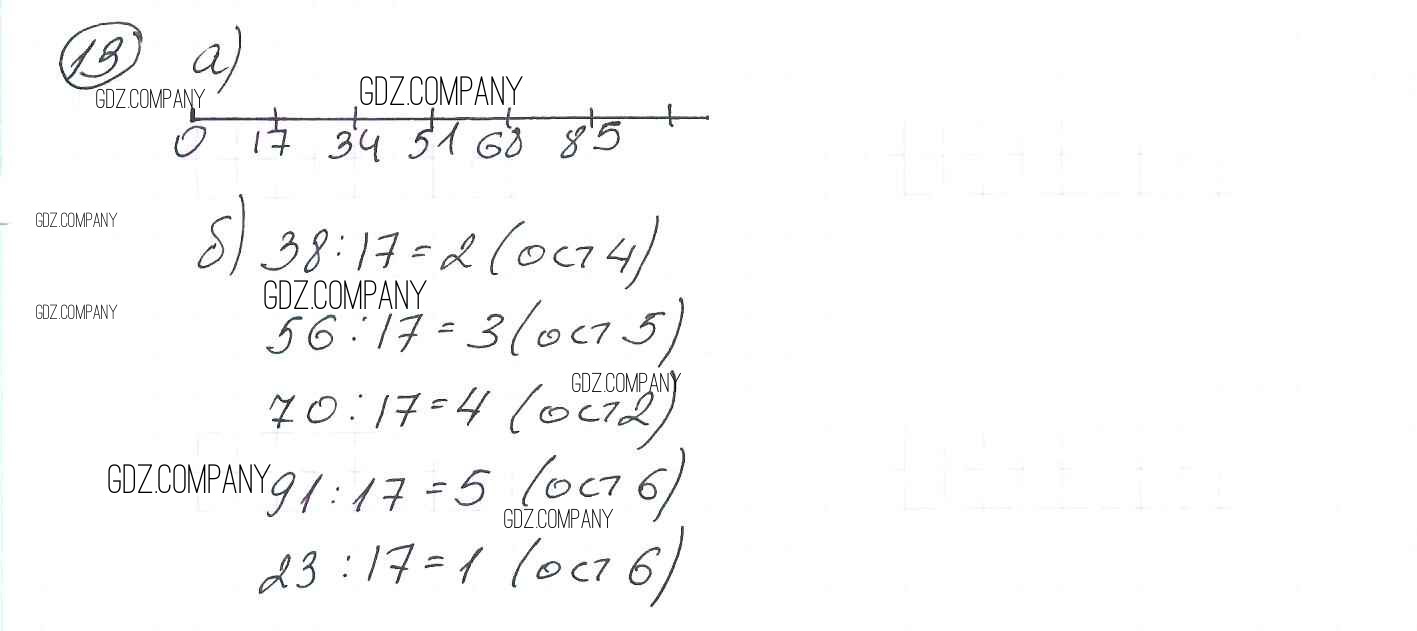 13 а)
GDZ.COMPANY GDZ.COMPANY
0 17 34 51 68 85
GDZ.COMPANY
б) 38:17=2 (ост 4)
GDZ.COMPANY
GDZ.COMPANY
56:17=3 (ост 5)
GDZ.COMPANY
70:17=4 (ост 2)
GDZ.COMPANY
91:17=5 (ост 6)
GDZ.COMPANY
23:17=1 (ост 6)